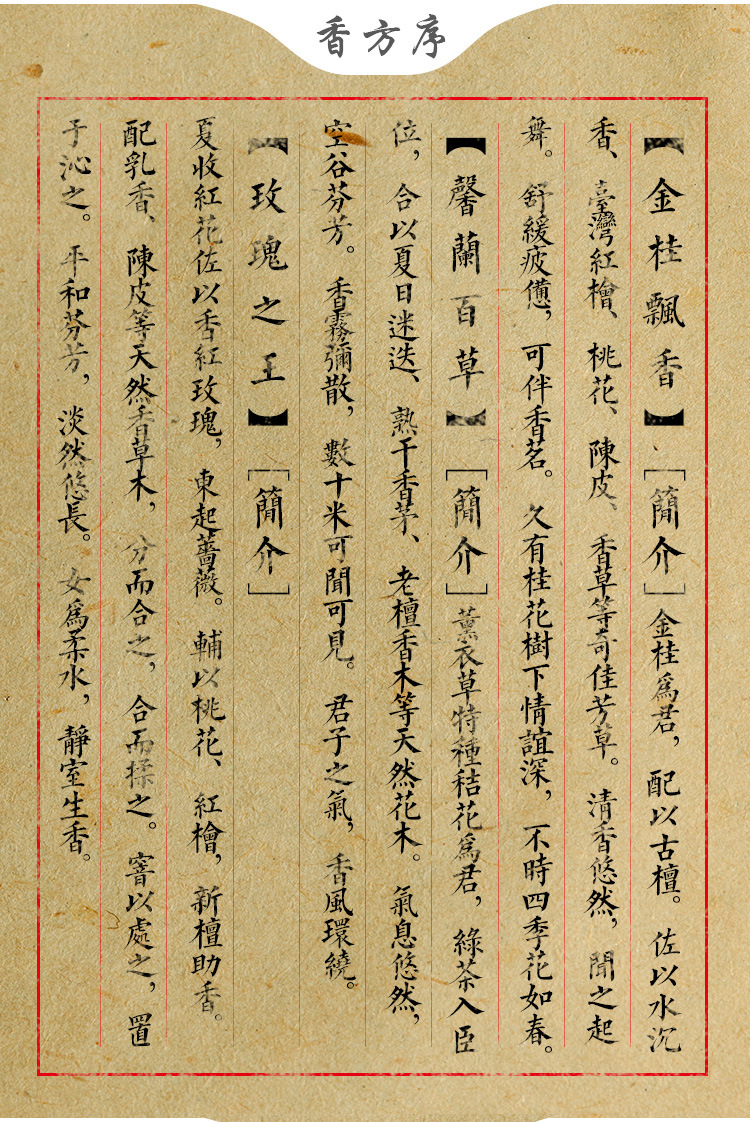 香方序
【金桂飄香】［簡介］金桂爲君，配以古檀。佐以水沉
香、臺灣紅檜、桃花、陳皮、香草等奇佳芳草。清香悠然，聞之起
舞。舒緩疲憊，可伴香茗。久有桂花樹下情誼深，不時四季花如春。
【馨蘭百草】［簡介］薰衣草特種秸花爲君，綠茶入臣
位，合以夏日迷迭、熟干香茅、老檀香木等天然花木。氣息悠然，
空谷芬芳。香霧彌散，數十米可聞可見。君子之氣，香風環繞。
【玫瑰之王】［簡介］
夏收紅花佐以香紅玫瑰，東起薔薇。輔以桃花、紅檜，新檀助香。
配乳香、陳皮等天然香草木，分而合之，合而揉之。窨以處之，置
于沁之。平和芬芳，淡然悠長。女爲柔水，靜室生香。